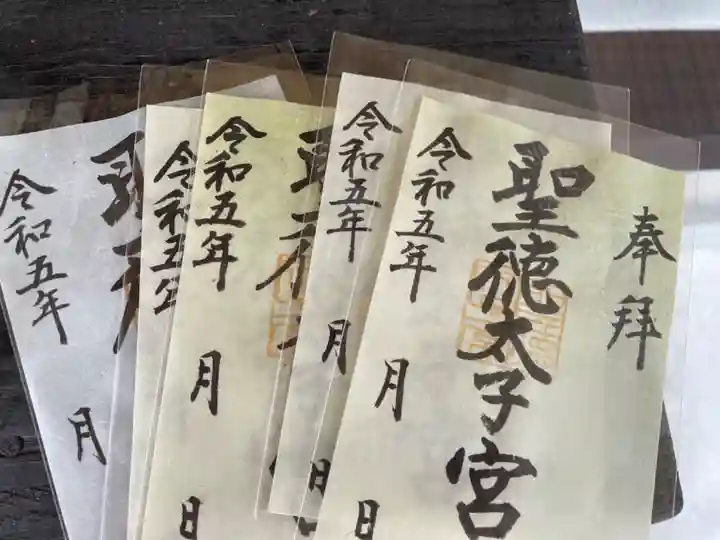 奉拝
聖徳太子宮
令和五年 月 日
令和五年 月 日
令和五年 月 日
令和五年
令和五年 月